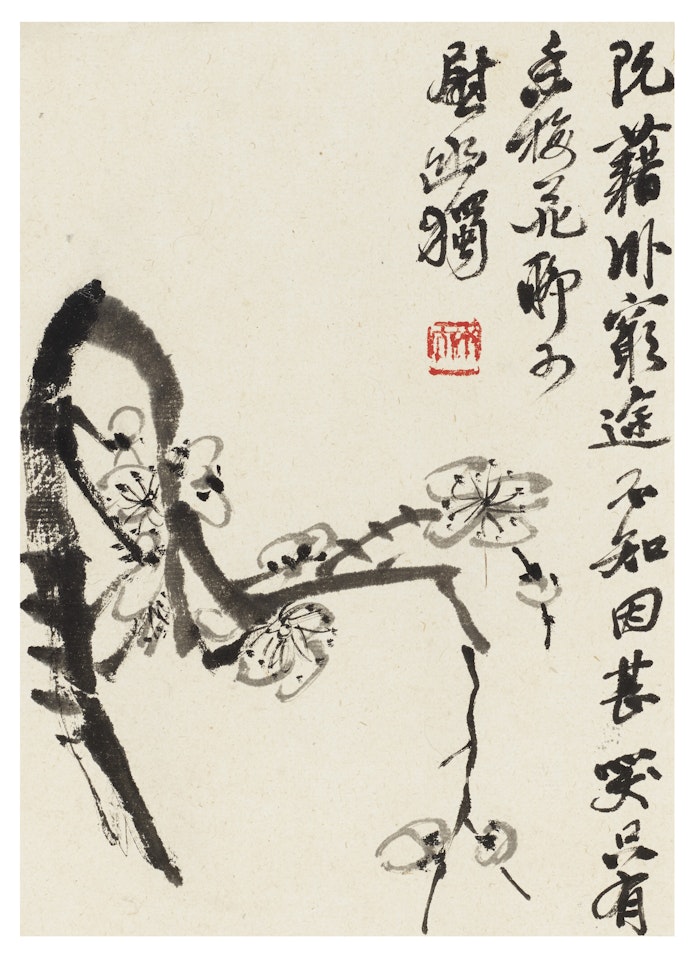 阮藉卧窮途不知因甚哭只有
香梅花聊可
慰幽獨